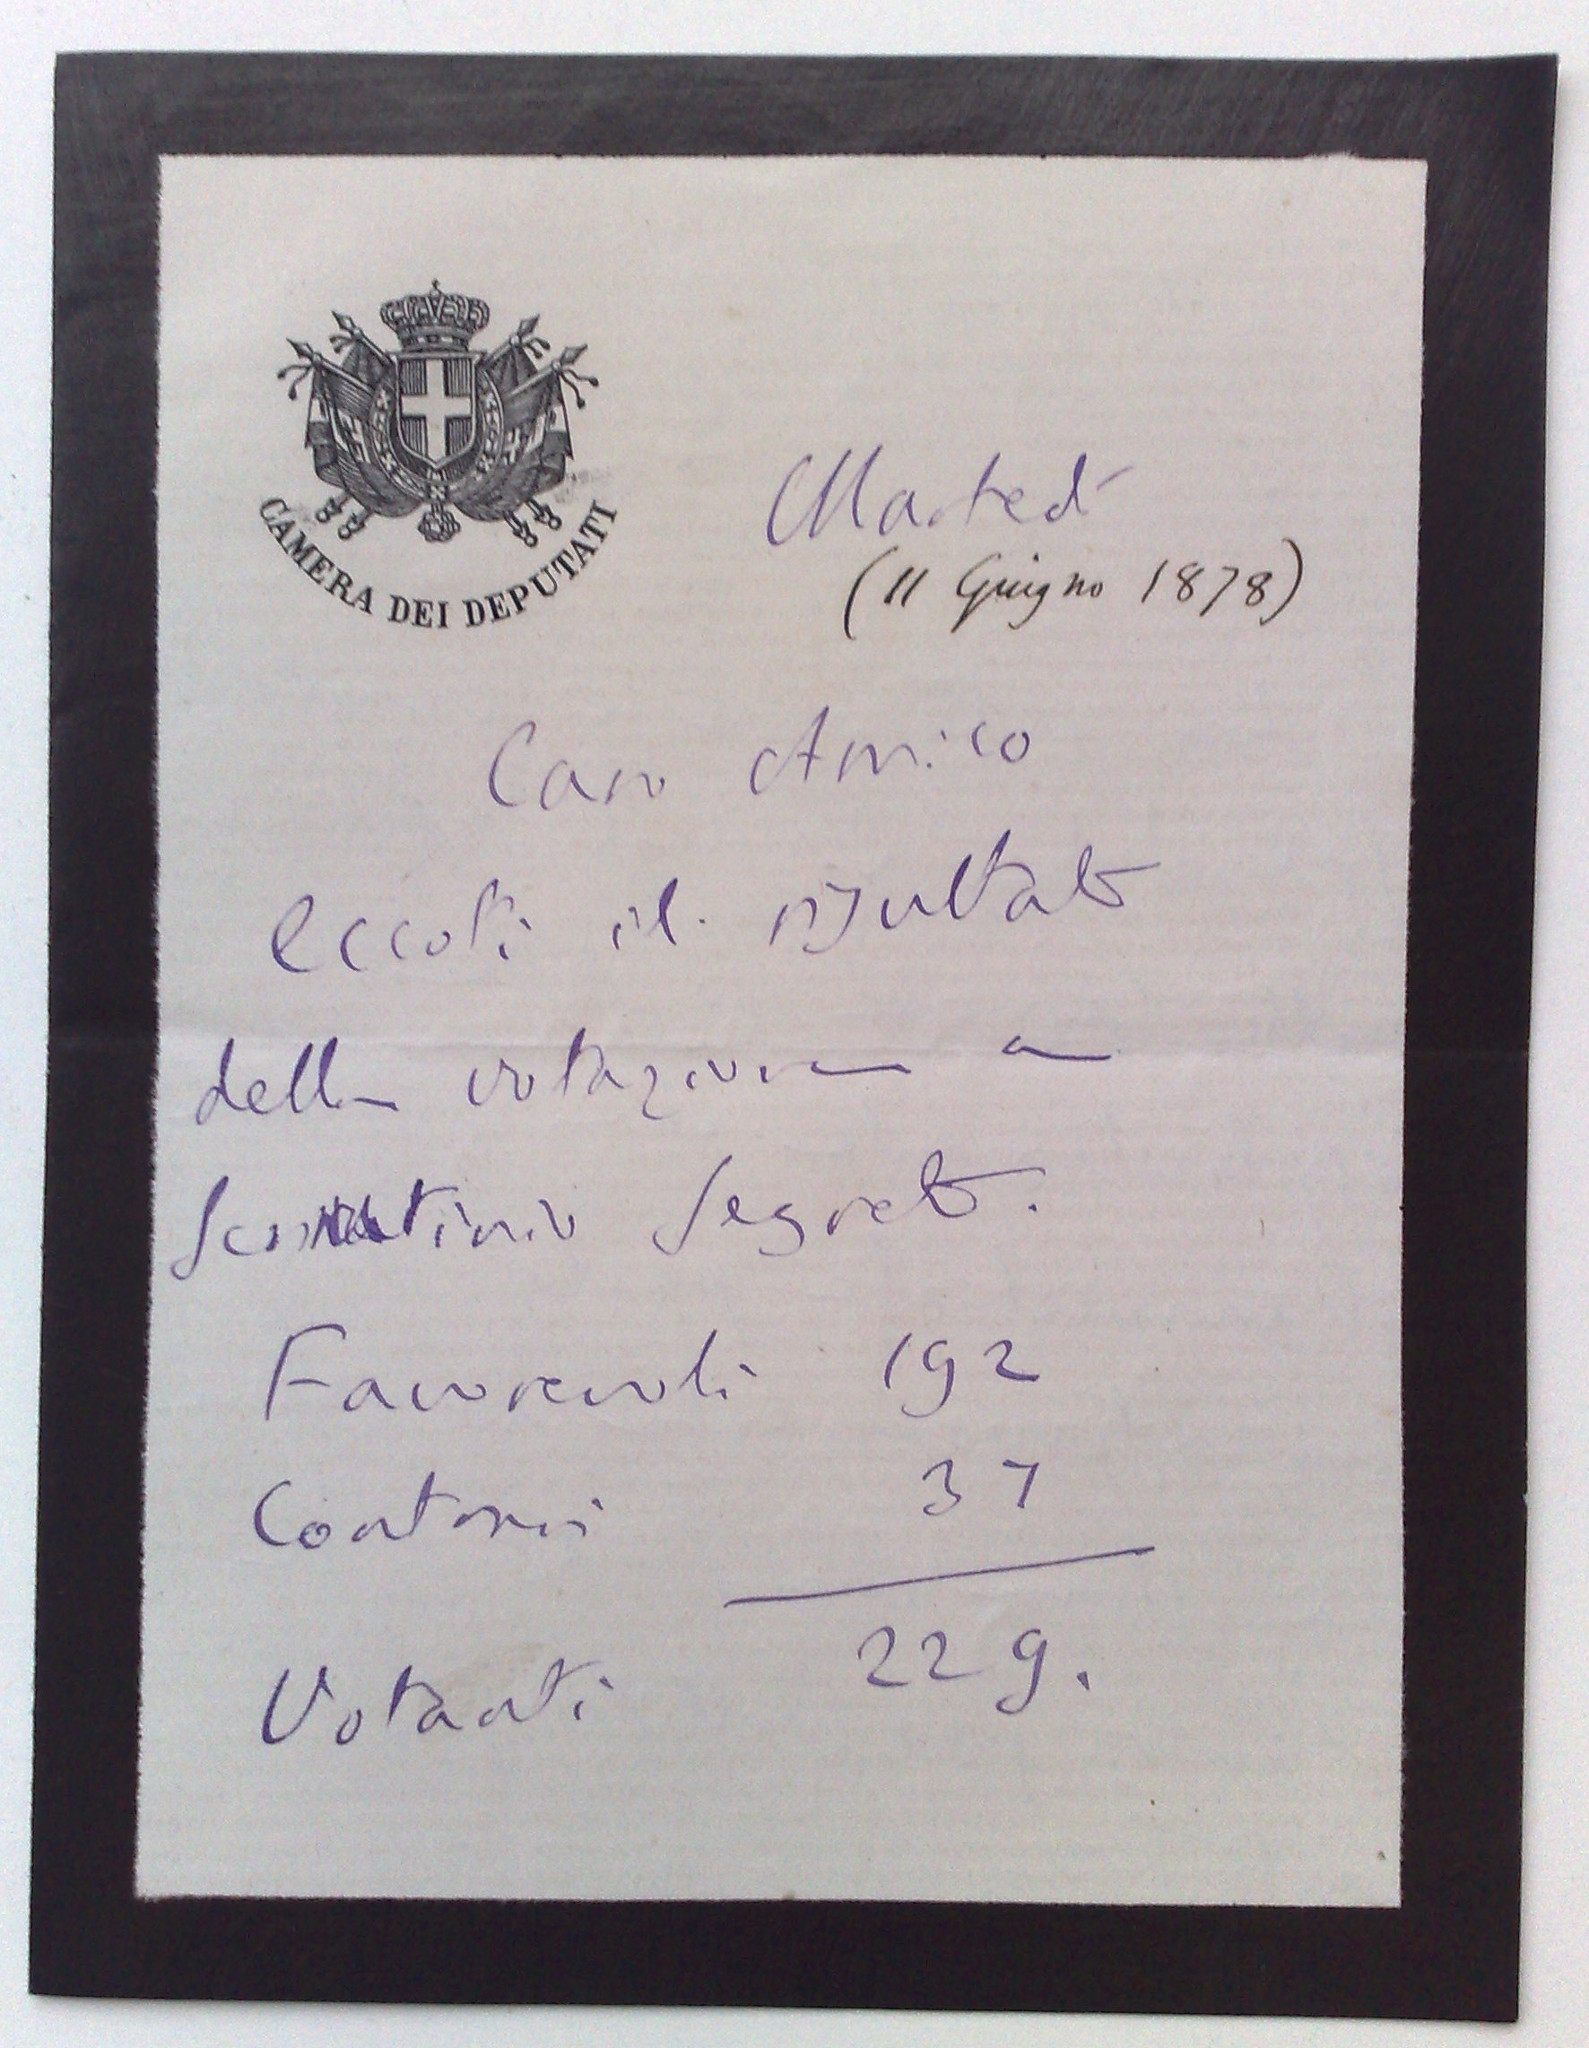 CAMERA DEI DEPUTATI
Martedì
(11 Giugno 1878)
Caro Amico
eccoti il risultato
della votazione a
scrutinio segreto.
Favorevoli 192
Contrari 37
Votanti 229.